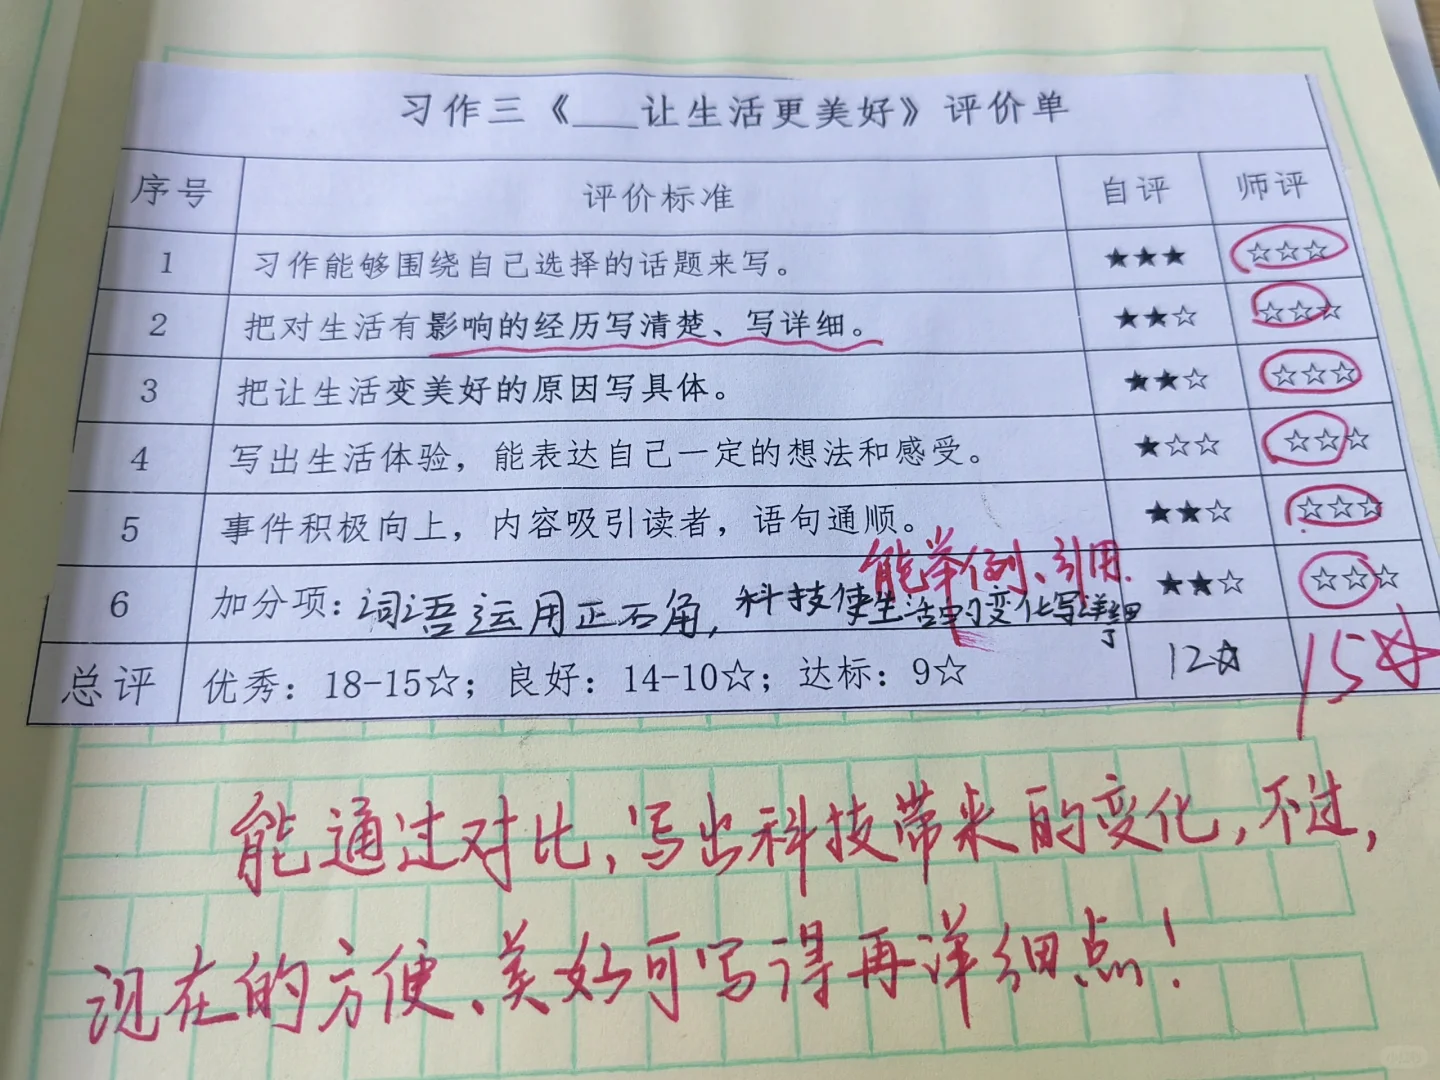 习作三《___让生活更美好》评价单
序号 评价标准 自评 师评
1 习作能够围绕自己选择的话题来写。 ★★★ ☆☆☆
2 把对生活有影响的经历写清楚、写详细。 ★★☆ ☆☆☆
3 把让生活变美好的原因写具体。 ★★☆ ☆☆☆
4 写出生活体验，能表达自己一定的想法和感受。 ★☆☆ ☆☆☆
5 事件积极向上，内容吸引读者，语句通顺。 ★★☆ ☆☆☆
能举例、引用.
6 加分项：词语运用正石角，科技使生活的变化写详细了 ★★☆ ☆☆☆
总评 优秀：18-15☆；良好：14-10☆；达标：9☆ 12☆ 15☆
能通过对比，写出科技带来的变化，不过，
现在的方便、美好可写得再详细点！